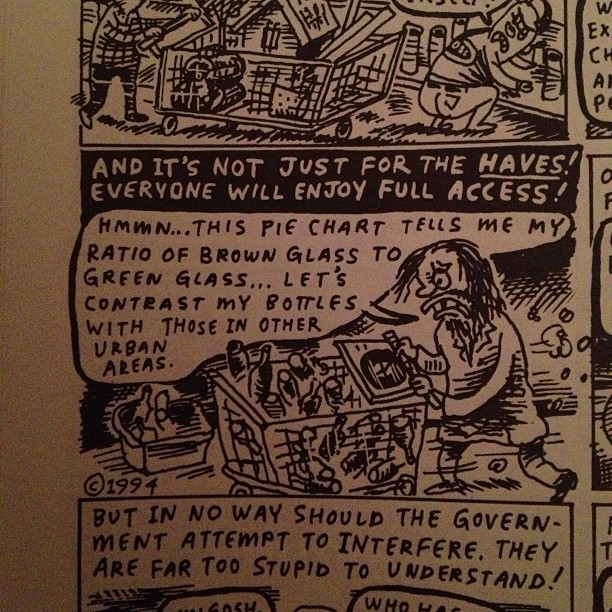 AND IT'S NOT JUST FOR THE HAVES!
EVERYONE WILL ENJOY FULL ACCESS!
HMMN...THIS PIE CHART TELLS ME MY
RATIO OF BROWN GLASS TO
GREEN GLASS... LET'S
CONTRAST MY BOTTLES
WITH THOSE IN OTHER
URBAN
AREAS.
©1994
BUT IN NO WAY SHOULD THE GOVERN-
MENT ATTEMPT TO INTERFERE. THEY
ARE FAR TOO STUPID TO UNDERSTAND!
GOSH,
WHO